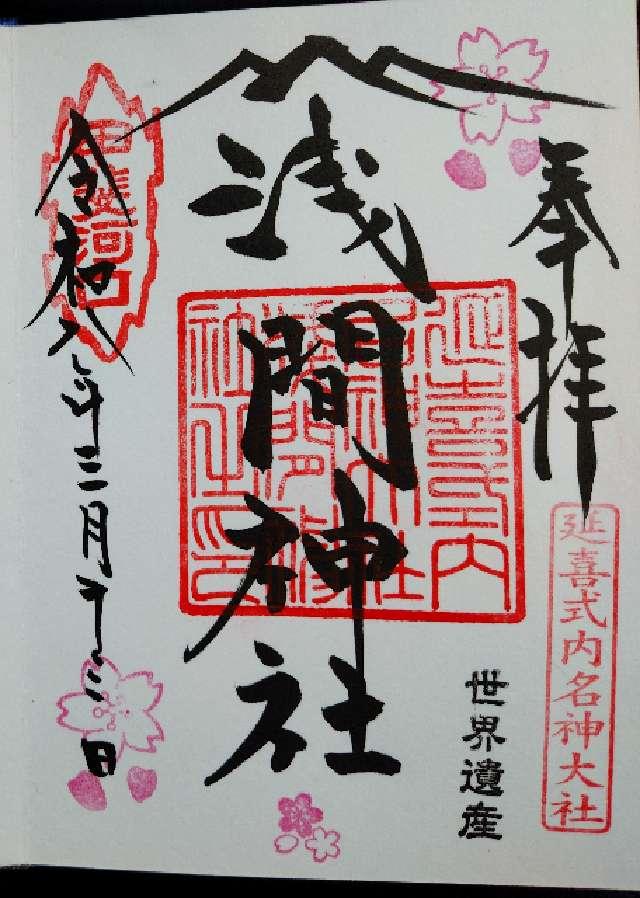 奉拝
延喜式内名神大社
世界遺産
浅間神社
延喜式内
名神大社
甲斐河口
令和八年三月
二日